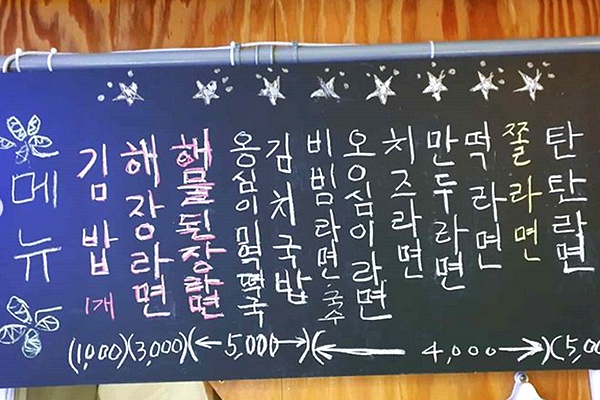 메뉴
김밥 1개
해장라면
해물된장라면
옹심이미역떡국
김치국밥
비빔라면·국수
옹심이라면
치즈라면
만두라면
떡라면
쫄라면
탄탄라면
(1,000)(3,000)(←5,000→)(← 4,000→)(5,00